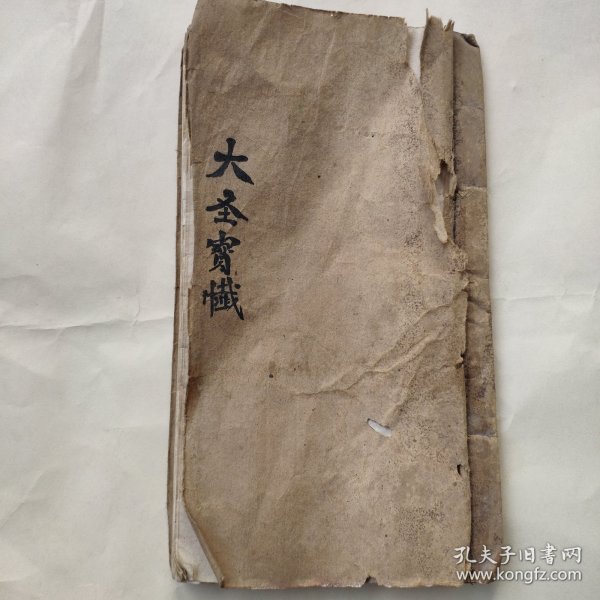 大圣寳懺
孔夫子旧书网
www.kongfz.com